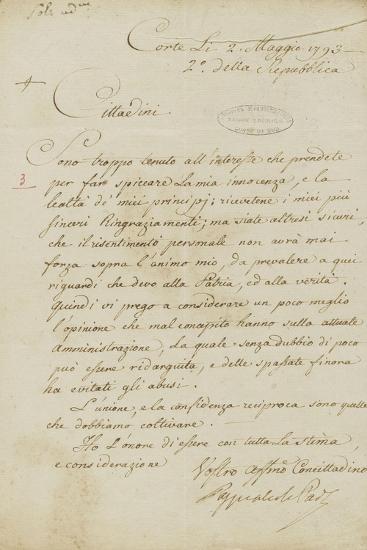 Corte Li 2. Maggio 1793
2.° della Repubblica
Cittadini
Sono troppo tenuto all' interesse che prendete
3
per far spiccare la mia innocenza, e la
lealtà de' miei principj; ricevetene i miei più
sinceri Ringraziamenti; ma siate altresi sicuri,
che il risentimento personale non avrà mai
forza sopra l'animo mio, da prevalere a quei
riguardi che devo alla Patria, ed alla verità.
Quindi vi prego a considerare un poco meglio
l'opinione che mal concepito hanno sulla attuale
Amministrazione, La quale senza dubbio di poco
può essere redarguita, e delle passate finora
ha evitati gli abusi.
L'unione, e la confidenza reciproca sono quelle
che dobbiamo coltivare.
Ho L'onore di essere con tutta La stima,
e considerazione
Vostro Affmo Concittadino
Pasquale de Paoli